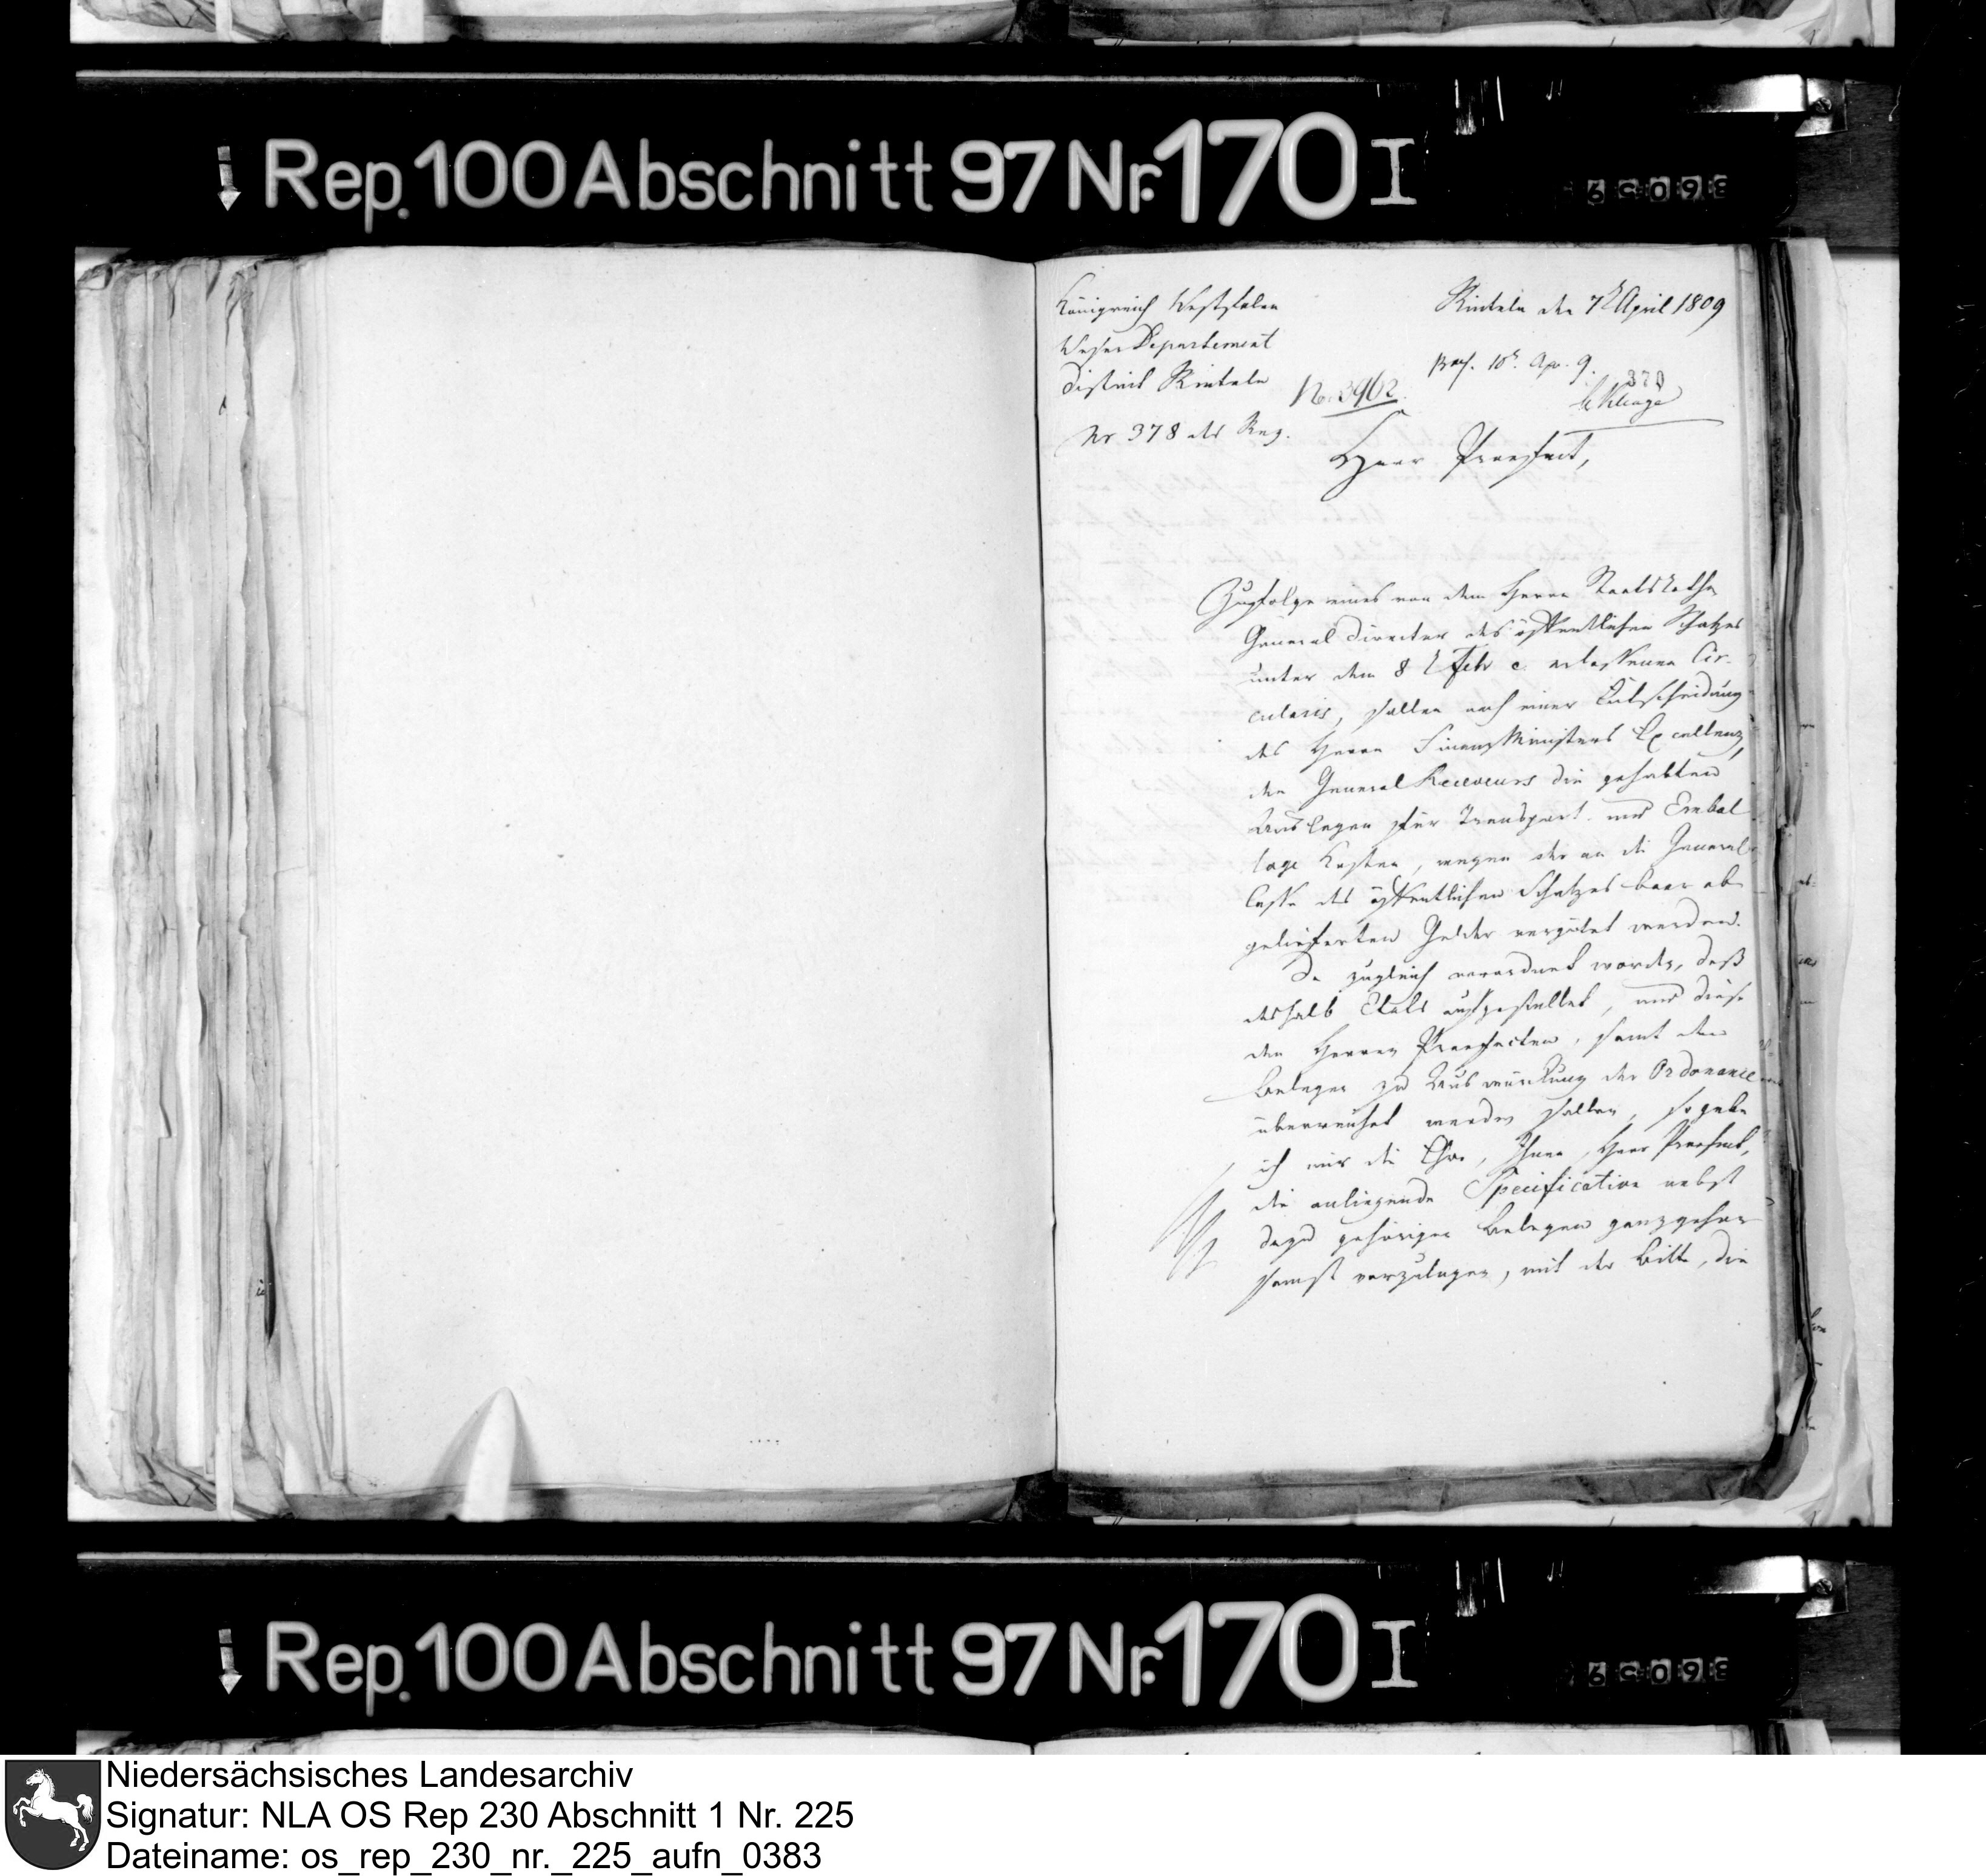 Rep. 100 Abschnitt 97 Nr. 170 I
Königreich Westfalen
Weser Departement
District Rinteln
Nr 378 des Reg.
No. 3962.
Rinteln den 7t April 1809
10t Apr. 9.
370
Herr Praefect,
Zugfolge eines von dem Herrn Staatsrathe
General Director des öffentlichen Schatzes
unter dem 8t Febr c. erlassenen Cir-
cularis, sollen nach einer Entscheidung
des Herrn Finanz Ministers Excellenz,
den General Receveurs die gehabten
Auslagen für Transport und Embal
lage Kosten, wegen der an die General
Casse des öffentlichen Schatzes baar ab
gelieferten Gelder vergütet werden.
Da zugleich verordnet worden, daß
deshalb Etats aufgestellet, und diese
den Herren Praefecten, samt den
Belegen zu Auswürkung der Ordonance
überreichet werden sollen, so gebe
ich mir die Ehre, Ihnen, Herr Praefect,
die anliegende Specification nebst
dazu gehörigen Belegen ganz gehor
samst vorzulegen, mit der Bitte, die
Rep. 100 Abschnitt 97 Nr. 170 I
Niedersächsisches Landesarchiv
Signatur: NLA OS Rep 230 Abschnitt 1 Nr. 225
Dateiname: os_rep_230_nr._225_aufn_0383